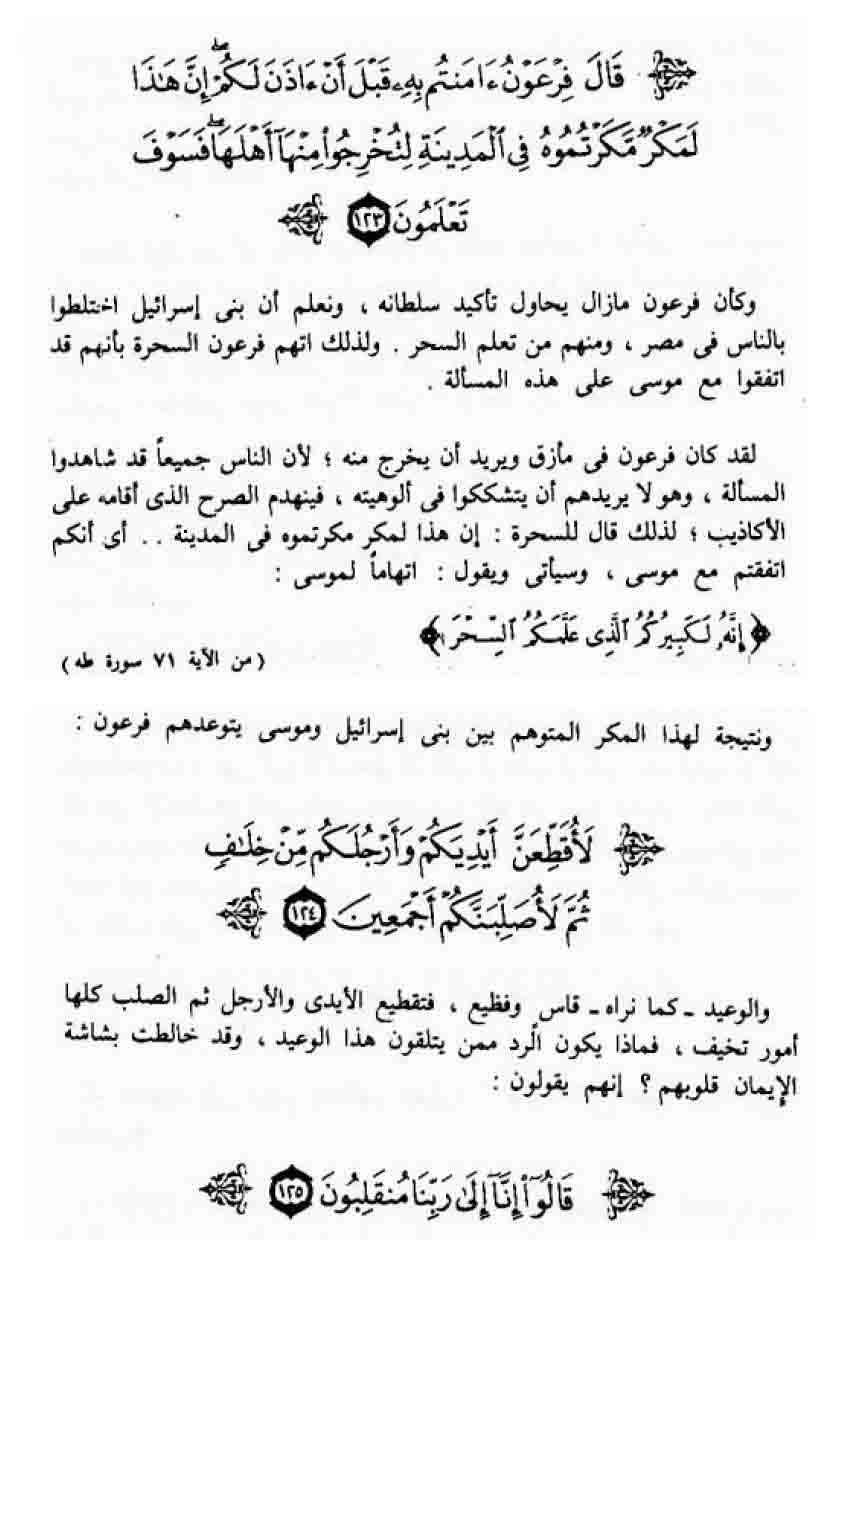 ﴿ قَالَ فِرْعَوْنُ ءَامَنتُم بِهِۦ قَبْلَ أَنْ ءَاذَنَ لَكُمْ ۖ إِنَّ هَٰذَا
لَمَكْرٌ مَّكَرْتُمُوهُ فِى ٱلْمَدِينَةِ لِتُخْرِجُوا۟ مِنْهَآ أَهْلَهَا ۖ فَسَوْفَ
تَعْلَمُونَ ١٢٣ ﴾
وكأن فرعون مازال يحاول تأكيد سلطانه ، ونعلم أن بنى إسرائيل اختلطوا
بالناس فى مصر ، ومنهم من تعلم السحر . ولذلك اتهم فرعون السحرة بأنهم قد
اتفقوا مع موسى على هذه المسألة .
لقد كان فرعون فى مأزق ويريد أن يخرج منه ؛ لأن الناس جميعاً قد شاهدوا
المسألة ، وهو لا يريدهم أن يتشككوا فى ألوهيته ، فينهدم الصرح الذى أقامه على
الأكاذيب ؛ لذلك قال للسحرة : إن هذا لمكر مكرتموه فى المدينة . . أى أنكم
اتفقتم مع موسى ، وسيأتى ويقول : اتهاماً لموسى :
﴿ إِنَّهُۥ لَكَبِيرُكُمُ ٱلَّذِى عَلَّمَكُمُ ٱلسِّحْرَ ﴾
( من الآية ٧١ سورة طه )
ونتيجة لهذا المكر المتوهم بين بنى إسرائيل وموسى يتوعدهم فرعون :
﴿ لَأُقَطِّعَنَّ أَيْدِيَكُمْ وَأَرْجُلَكُم مِّنْ خِلَٰفٍ
ثُمَّ لَأُصَلِّبَنَّكُمْ أَجْمَعِينَ ١٢٤ ﴾
والوعيد - كما نراه - قاسٍ وفظيع ، فتقطيع الأيدى والأرجل ثم الصلب كلها
أمور تخيف ، فماذا يكون الرد ممن يتلقون هذا الوعيد ، وقد خالطت بشاشة
الإيمان قلوبهم ؟ إنهم يقولون :
﴿ قَالُوٓا۟ إِنَّآ إِلَىٰ رَبِّنَا مُنقَلِبُونَ ١٢٥ ﴾